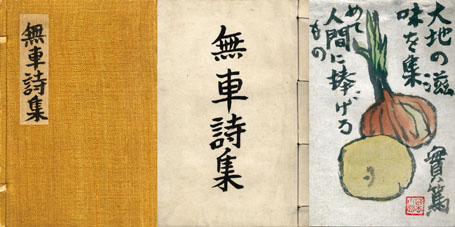 無車詩集
無車詩集
大地の滋
味を集
めて
人間に捧げる
もの
實篤